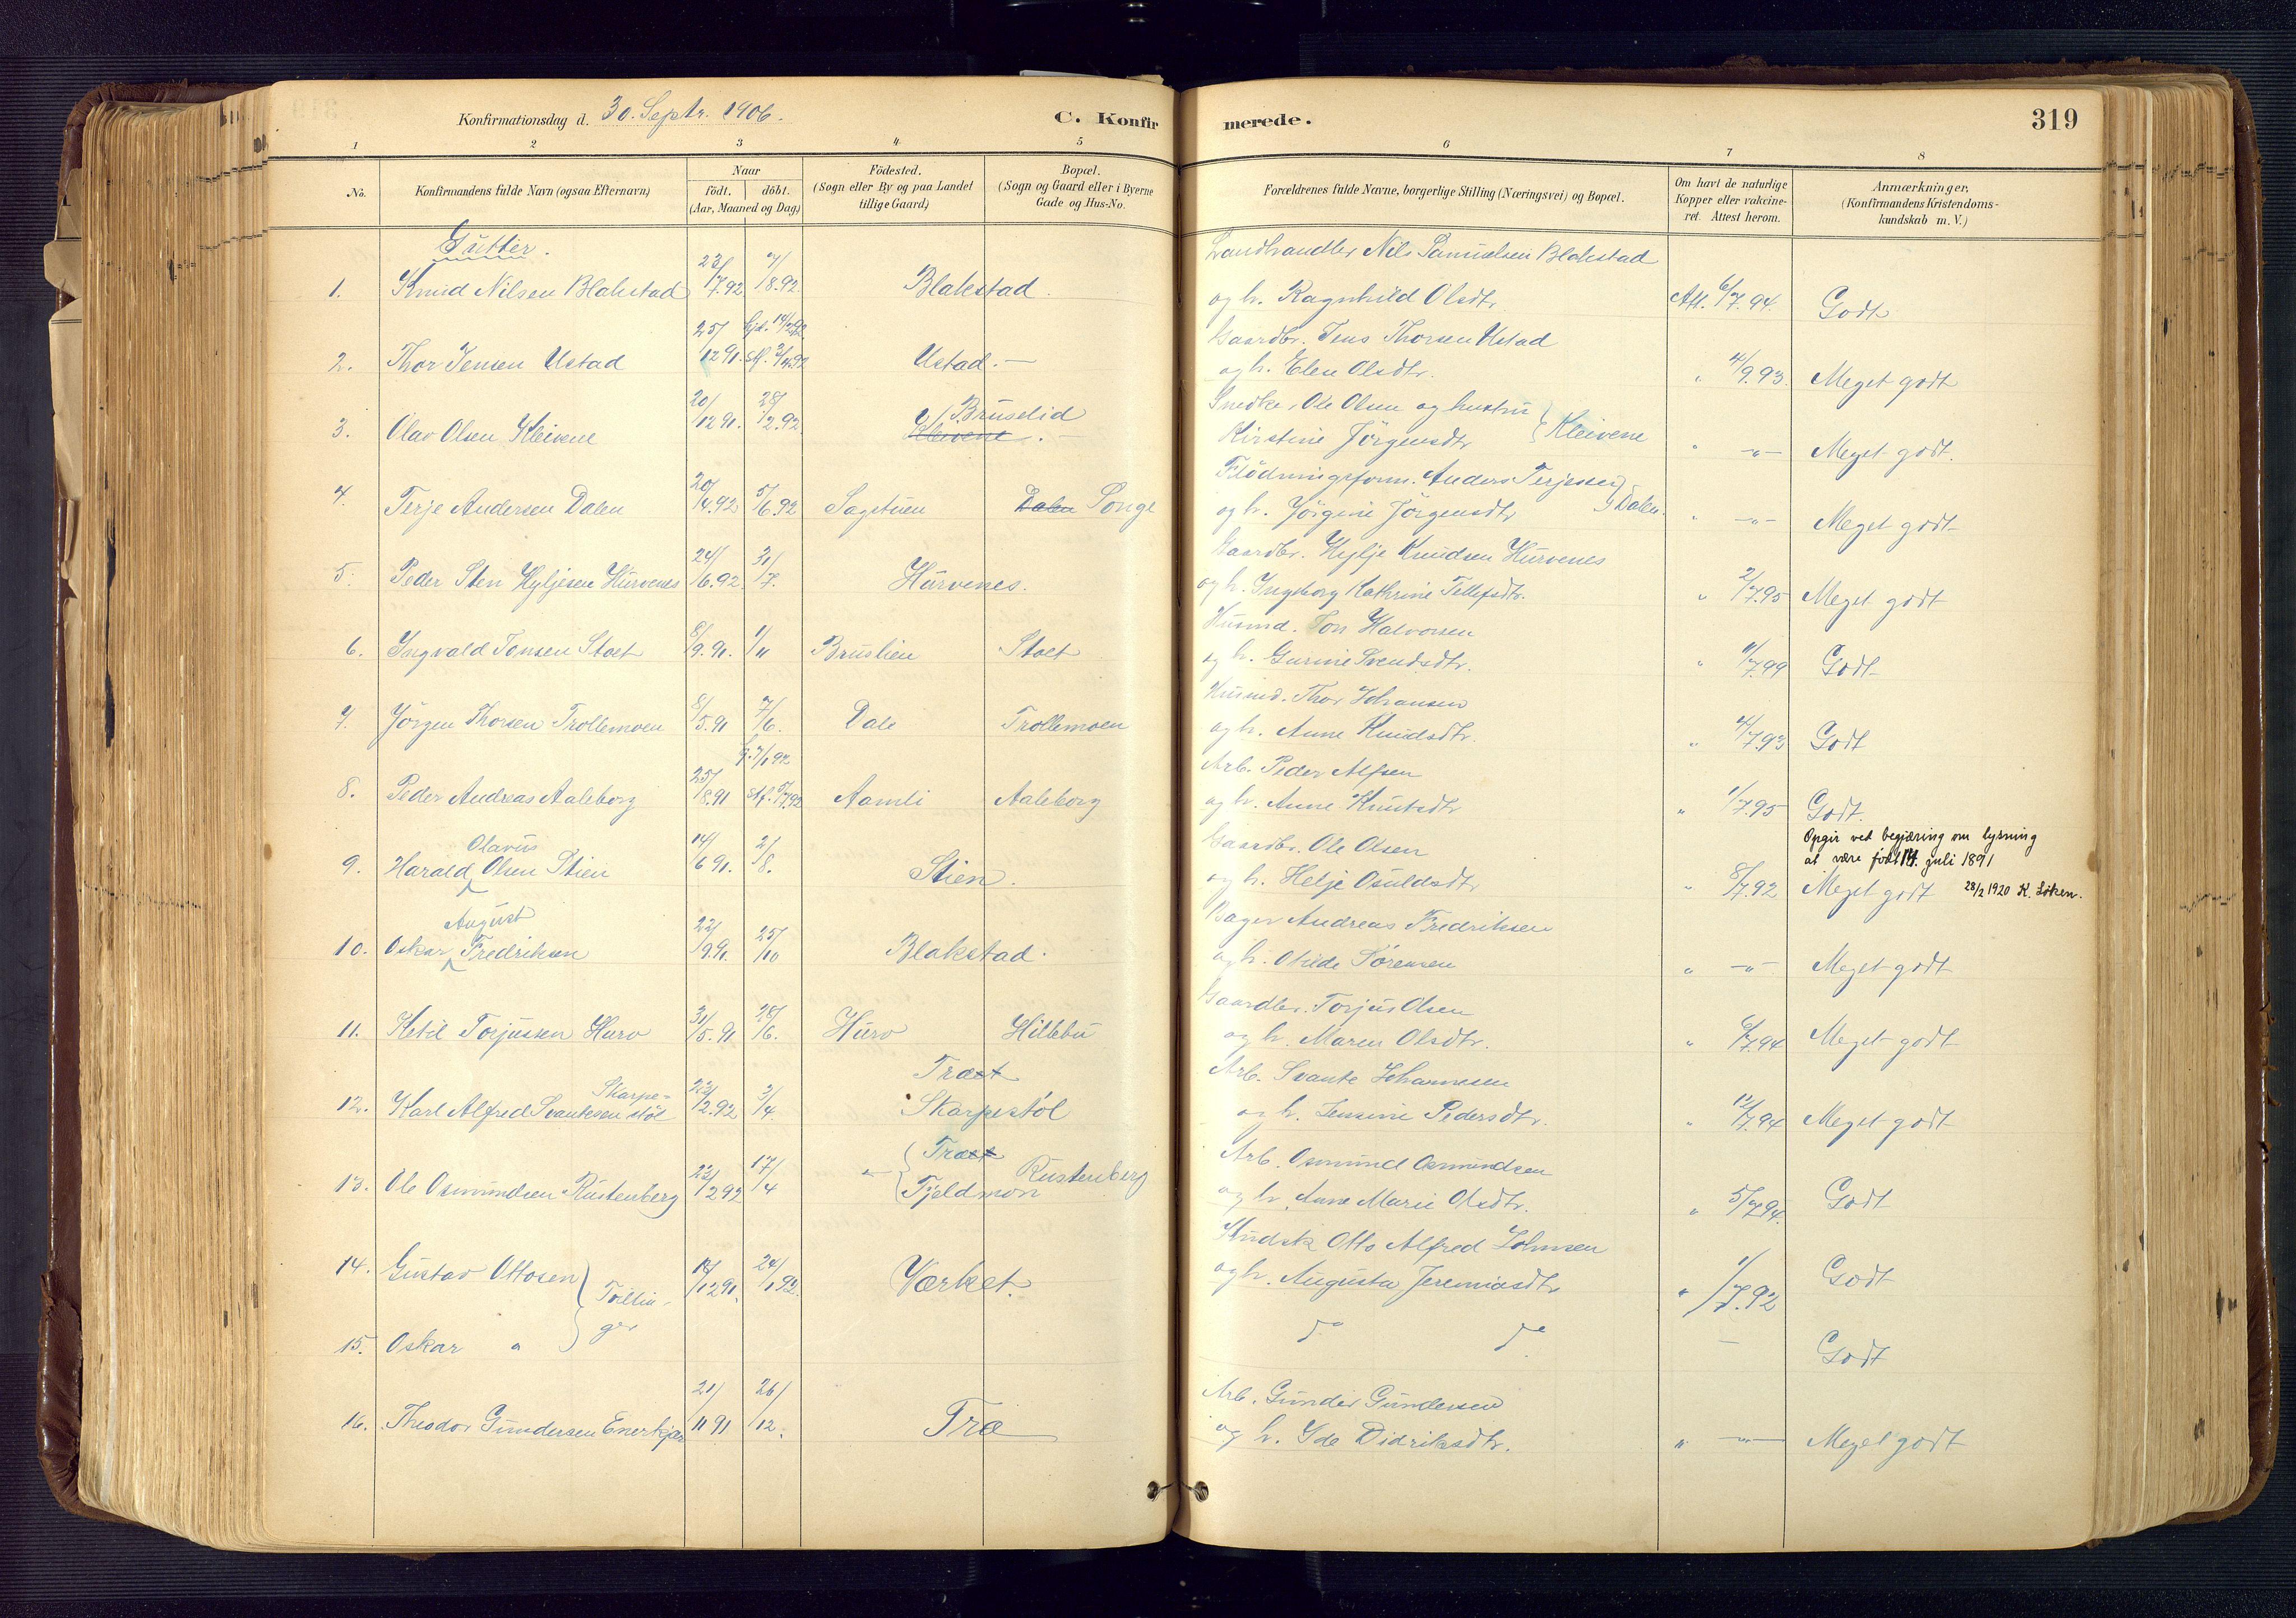 Konfirmationsdag d. 30. Septr. 1906.
C. Konfirmerede.
319
1 2 3 4 5 6 7 8
No.
Konfirmandens fulde Navn (ogsaa Efternavn)
Naar
født. døbt.
(Aar, Maaned og Dag)
Fødested.
(Sogn eller By og paa Landet
tillige Gaard)
Bopæl.
(Sogn og Gaard eller i Byerne
Gade og Hus-No.
Forældrenes fulde Navne, borgerlige Stilling (Næringsvei) og Bopæl.
Om havt de naturlige
Kopper eller vakcine-
ret. Attest herom.
Anmærkninger.
(Konfirmandens Kristendoms-
kundskab m. V.)
Gutter.
Landhandler Nils Samuelsen Blakstad
1. Knud Nilsen Blakstad 23/7.92 7/8.92 Blakstad. og h. Ragnhild Olsdtr. Att. 6/7.94. Godt
Gaardbr. Jens Thorsen Ustad
2. Thor Jensen Ustad 25/12 91. Ustad. — og h. Elen Olsdtr. " 4/9.93. Meget godt
Snedker Ole Olsen og hustru
3. Olav Olsen Kleivene 20/12 91. 28/2.92. Kleivene Bruselid Kirstine Jörgensdtr } Kleivene " —"— Meget godt.
Flödningsform. Anders Terjesen
4. Terje Andersen Dalen 20/4.92 5/6.92 Sagstuen Dalen Songe og h. Jörgine Jörgensdtr } Dalen. " —"— Meget godt
Gaardbr. Kylje Knudsen Hurvenes
5. Peder Sten Kyljesen Hurvenes 24/6.92. 31/7. Hurvenes. og h. Ingeborg Kathrine Tellefsdtr. " 2/7.95 Meget godt
Husmd. Jon Halvorsen
6. Ingvald Jonsen Stoet 8/9.91. 1/11 Bruslien Stoet og h. Gurine Svendsdtr. " 11/7.99 Godt
Husmd. Thor Johansen
7. Jörgen Thorsen Trollemoen 8/5.91 7/6. Dale Trollemoen og h. Anne Knudsdtr. " 4/7.93 Godt
Arb. Peder Alfsen
8. Peder Andreas Aaleborg 25/8.91 Aamli Aaleborg og h. Anne Knutsdtr " 1/7.95 Godt.
Opgir ved begjæring om lysning
at være født 14. juli 1891
Olavus
Gaardbr. Ole Olsen
9. Harald Olsen Stien 14/6 91. 2/8. Stien. og h. Helje Osuldsdtr " 8/7.92 Meget godt 28/2 1920 K. Löken.
August
Bager Andreas Fredriksen
10. Oskar Fredriksen 22/9.91. 25/10 Blakstad. og h. Otilde Sörensen " —"— Meget godt
Gaardbr. Torjus Olsen
11. Ketil Torjussen Hurv 31/5.91 28/6. Hurv Hillebu og h. Maren Olsdtr. " 6/7.94 Meget godt
Træet
Arb. Svante Johannesen
12. Karl Alfred Svantesen Skarpe-
stöl 22/2.92 3/4 Skarpestöl og h. Jensine Pedersdtr. " 12/7.94 Meget godt
Træet
Arb. Osmund Osmundsen
13. Ole Osmundsen Rustenberg 22/2 92 17/4 Fjeldmon Rustenberg og h. Anne Marie Olsdtr. " 5/7.94. Godt
Otto Alfred Johnsen
14. Gustav Ottosen } Tvillin-
ger 24/1.92. Værket. og h. Augusta Jeremiasdtr " 1/7.92 Godt
15. Oskar " do do — Godt
Arb. Gunder Gundersen
16. Theodor Gundersen Enerkjær 21/11 91 26/12. Træ og h. Ida Didriksdtr. " —"— Meget godt